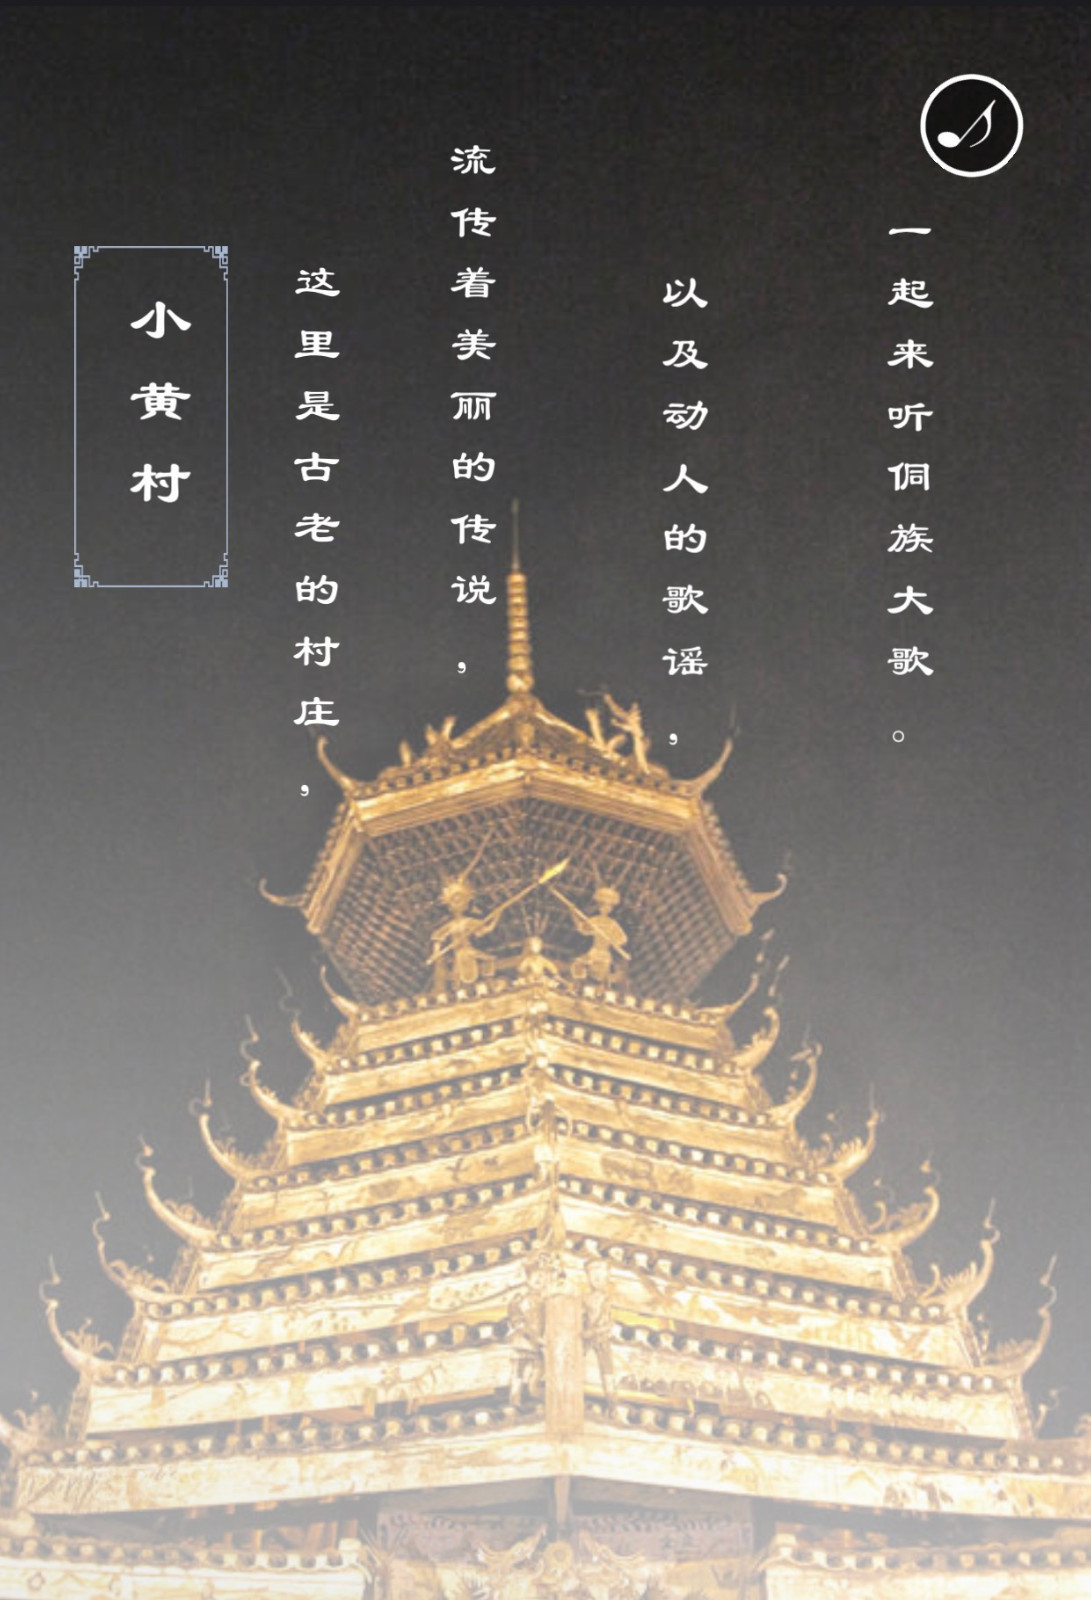 小黄村
这里是古老的村庄，
流传着美丽的传说，
以及动人的歌谣，
一起来听侗族大歌。